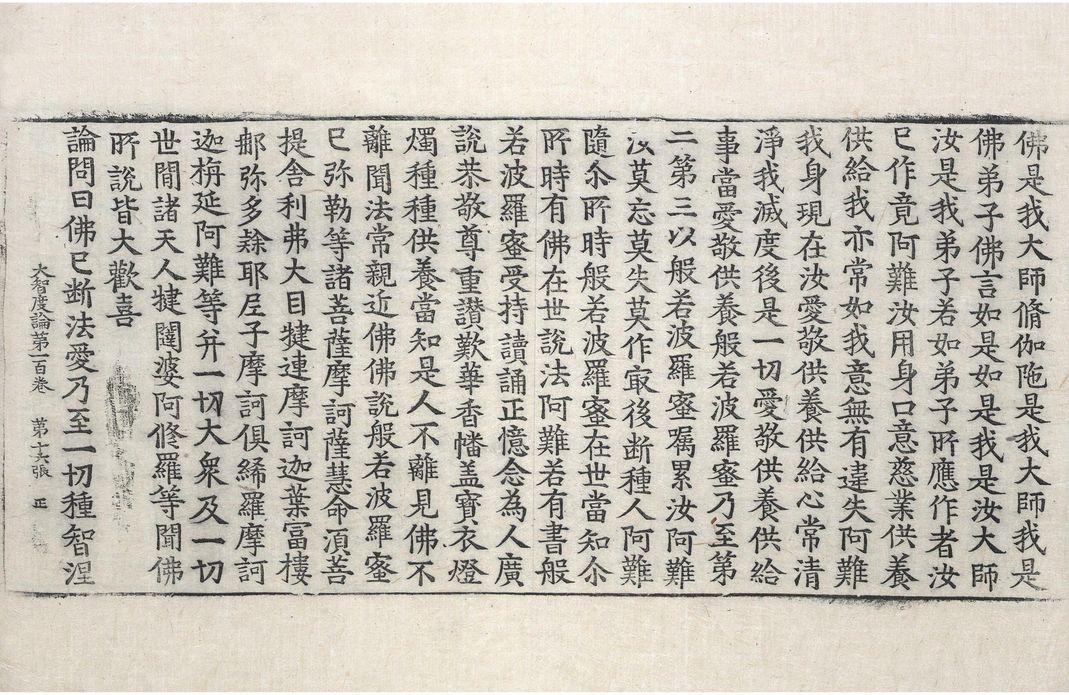 佛是我大師脩伽陁是我大師我是
佛弟子佛言如是如是我是汝大師
汝是我弟子若如弟子所應作者汝
已作竟阿難汝用身口意慈業供養
供給我亦常如我意無有違失阿難
我身現在汝愛敬供養供給心常清
淨我滅度後是一切愛敬供養供給
事當愛敬供養般若波羅蜜乃至第
二第三以般若波羅蜜囑累汝阿難
汝莫忘莫失莫作㝡後断種人阿難
隨尒所時般若波羅蜜在世當知尒
所時有佛在世說法阿難若有書般
若波羅蜜受持讀誦正憶念為人廣
說恭敬尊重讚歎華香幡盖寶衣燈
燭種種供養當知是人不離見佛不
離聞法常親近佛佛說般若波羅蜜
已弥勒等諸菩薩摩訶薩慧命湏菩
提舍利弗大目揵連摩訶迦葉富樓
郍弥多羅耶𡰱子摩訶俱絺羅摩訶
迦栴延阿難等并一切大衆及一切
世閒諸天人揵闥婆阿修羅等聞佛
所說皆大歡喜
論問曰佛已断法愛乃至一切種智涅
大智度論第一百卷 第十六張 正